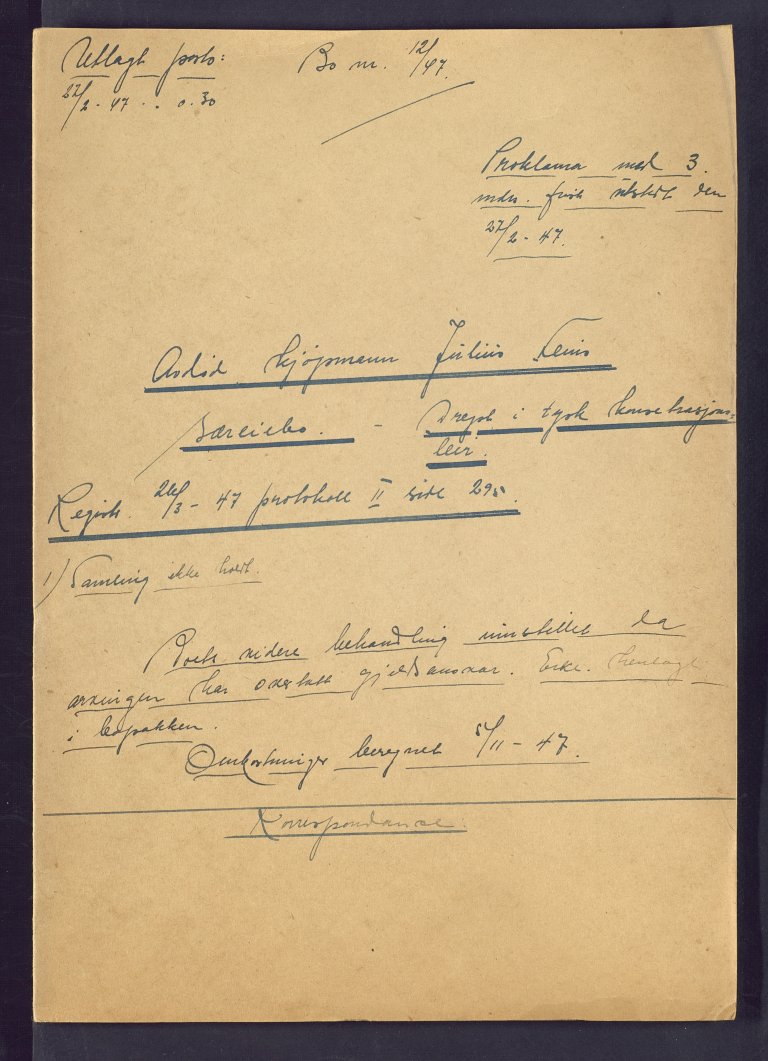 Utlagt porto:
Bo nr. 12/47.
27/2 - 47 .. 0.30
Proklama med 3
mdrs. frist utstedt den
27/2 - 47.
Avdød kjøpmann Julius Fein
særeiebo. - Drept i tysk konsetrasjons=
leir.
Registr. 26/3 - 47 protokoll II side 295.
1) Samling ikke holdt.
Boets videre behandling innstillet da
arvingen har overtatt gjeldsansvar. Erkl. henlagt
i bopakken.
Omkostninger beregnet 5/11 - 47.
Korrespondanse.